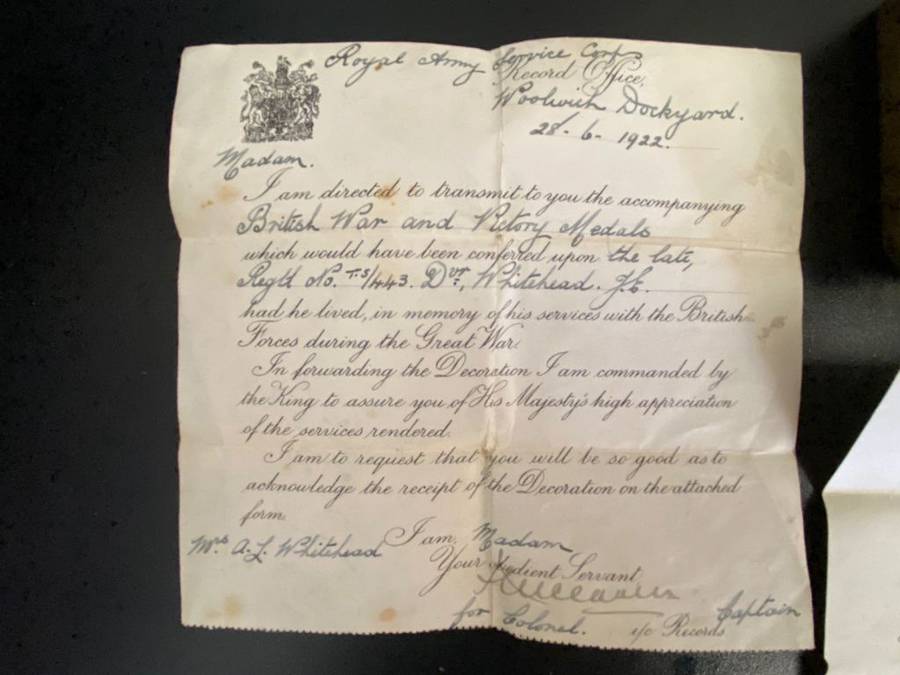 Royal Army Service Corps
Record Office,
Woolwich Dockyard.
28-6-1922.
Madam.
I am directed to transmit to you the accompanying
British War and Victory Medals
which would have been conferred upon the late,
Regtl No. TS/443. Dvr, Whitehead. J.E.
had he lived, in memory of his services with the British
Forces during the Great War.
In forwarding the Decoration I am commanded by
the King to assure you of His Majesty's high appreciation
of the services rendered.
I am to request that you will be so good as to
acknowledge the receipt of the Decoration on the attached
form.
I am, Madam
Mrs A. L. Whitehead
Your Obedient Servant,
Captain
for Colonel. i/c Records